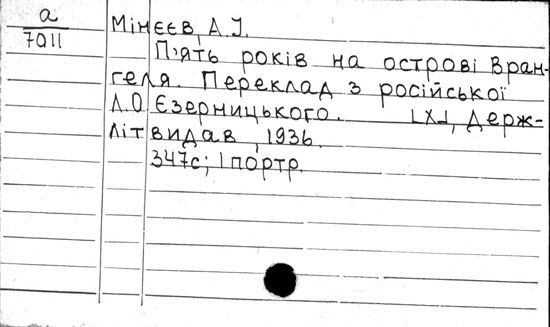 а
7011
Мінєєв, А.І.
П'ять років на острові Вран-
геля. Переклад з російської
Л.О Єзерницького. [Х], Держ-
літвидав, 1936.
347с; 1 портр.